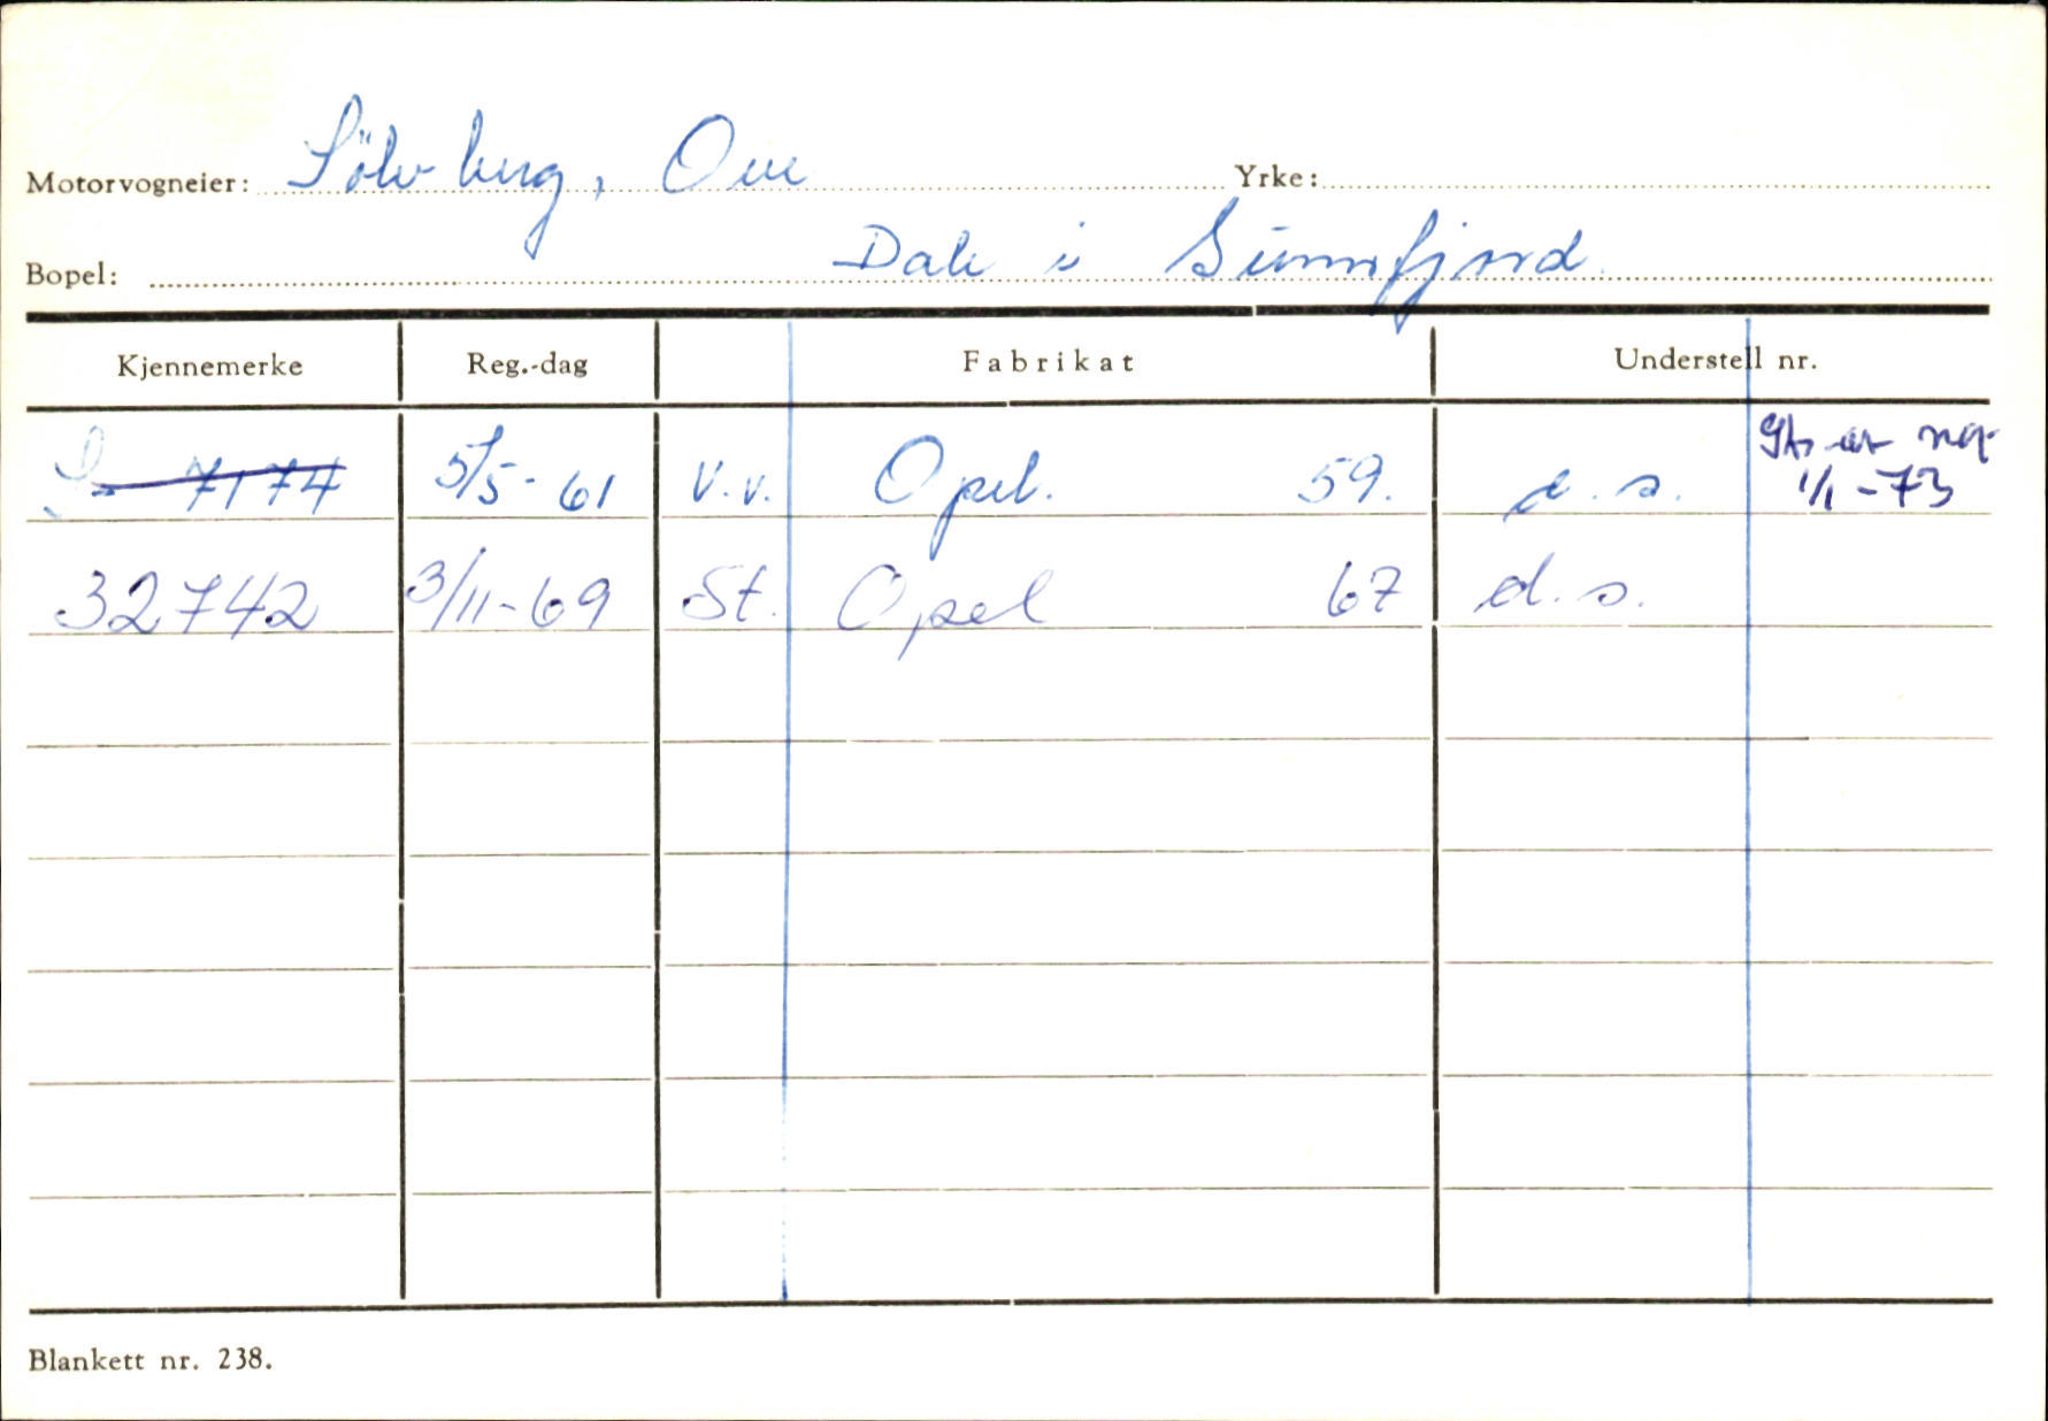 Motorvogneier: Sölvberg, Ove Yrke:
Bopel: Dale i Sunnfjord
Kjennemerke Reg.-dag Fabrikat Understell nr.
S- 7174 5/5-61 V.v. Opel. 59. d.s.
1/1-73
32742 3/11-69 St. Opel 67 d.s.
Blankett nr. 238.